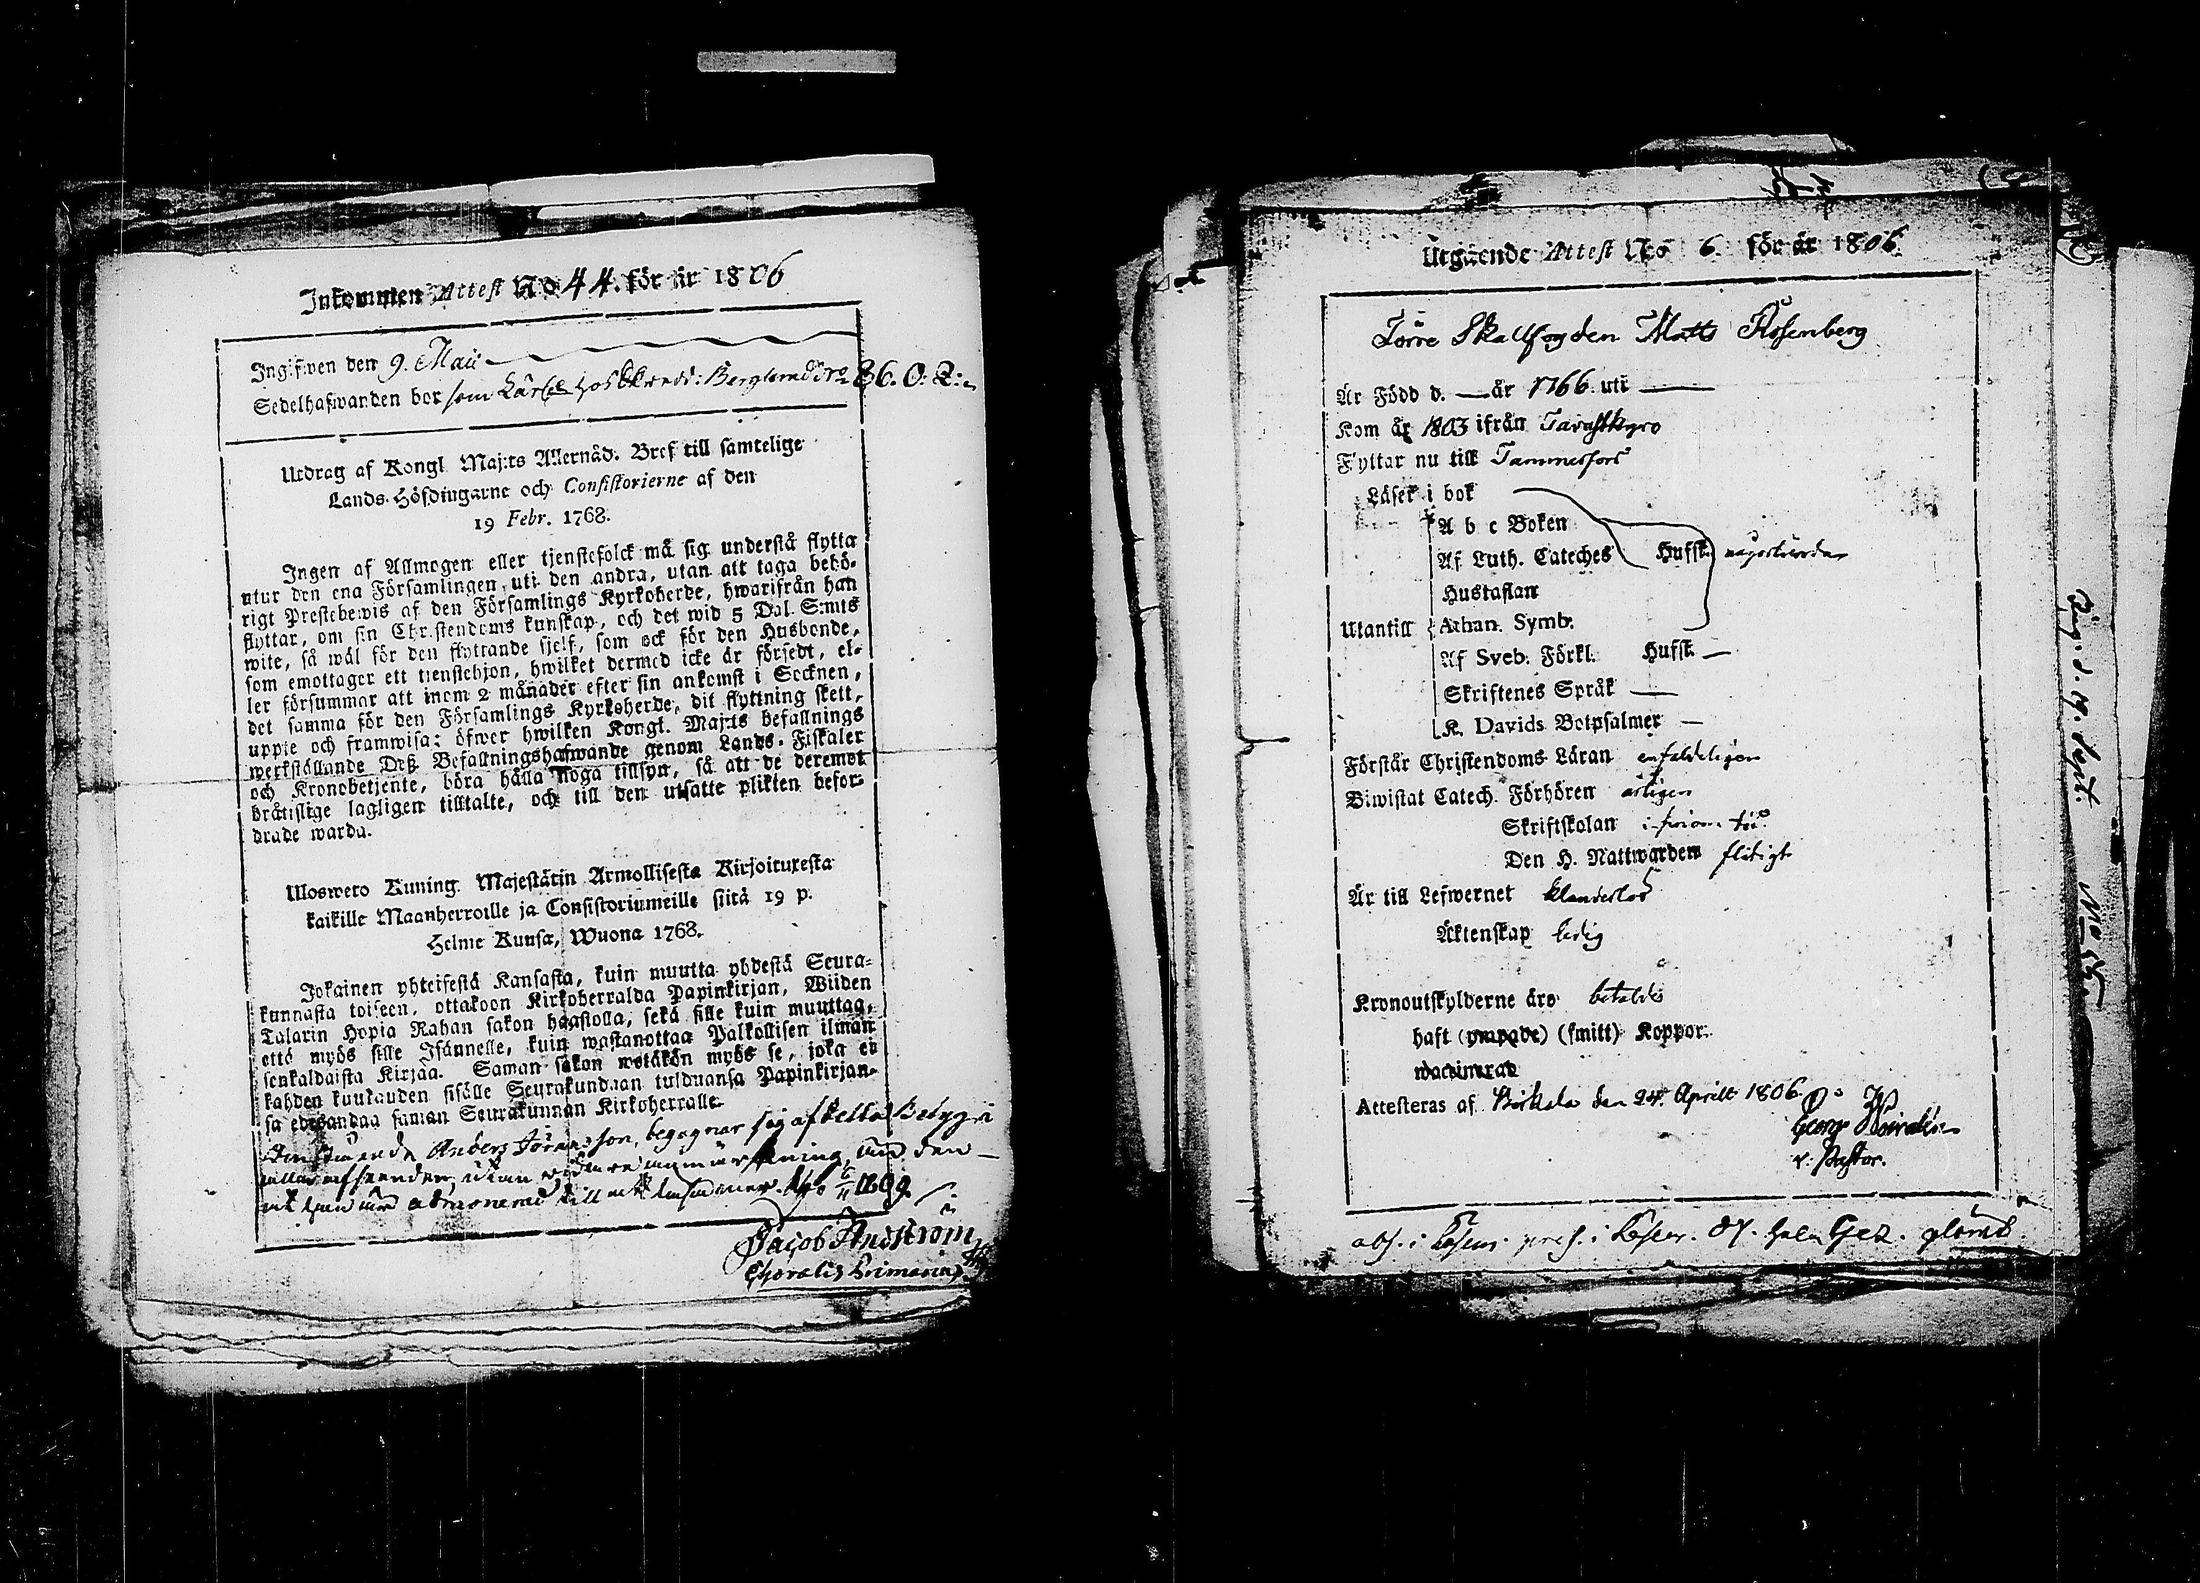 Inkommen Attest No 44. för år 1806
Ingifwen den 9. Maii
Sedelhafwanden bor som Lärl hos Berglund No 86. O: Q:
Utdrag af Kongl. Maj:ts Allernåd. Bref till samtelige
Lands-Höfdingarne och Consistorierne af den
19 Febr. 1768.
Ingen af Allmogen eller tjenstefolck må sig understå flytta
utur den ena Församlingen uti den andra, utan att taga behö-
rigt Prestebewis af den Församlings Kyrkoherde, hwarifrån han
flyttar, om sin Christendoms kunskap, och det wid 5 Dal. S:mts
wite, så wäl för den flyttande sjelf, som ock för den Husbonde,
som emottager ett tjenstehjon, hwilket dermed icke är försedt, el-
ler försummar att inom 2 månader efter sin ankomst i Socknen,
det samma för den Församlings Kyrkoherde, dit flyttning skett,
uppte och framwisa: öfwer hwilken Kongl. Maj:ts befallnings
werkställande Deß Befallningshafwande genom Lands-Fiskaler
och Kronobetjente, böra hålla noga tillsyn, så att de deremot
bråtislige lagligen tilltalte, och till den utsatte plikten befor-
drade warda.
Ulosweto Kuning. Majestätin Armollisesta Kirjoituxesta
kaikille Maanherroille ja Consistoriumeille siitä 19 p.
Helme Kuusa, Wuona 1768.
Jokainen yhteisestä Kansasta, kuin muutta yhdestä Seura-
kunnasta toiseen, ottakoon Kirkoherralda Papinkirjan, Wiiden
Talarin Hopia Rahan sakon haastolla, sekä sille kuin muuttaa,
että myös sille Isännelle, kuin wastanottaa Palkollisen ilman
senkaldaista Kirjaa. Saman sakon wetäkön myös se, joka ei
kahden kuukauden sisälle Seurakundaan tulduansa Papinkirjan-
sa edesandaa saman Seurakunnan Kirkoherralle.
Anders Göransson, begagnar sig af detta Betyg i
utan widare anmärkning, än den
admonerad till 1809.
Jacob Åhdström
Utgående Attest No 6. för år 1806.
Förre Skallfogden Matts Rosenberg
Är Född d. — år 1766 uti —
Kom år 1803 ifrån Tavastkyro
Flyttar nu till Tammerfors
Läser i bok
A b c Boken
Af Luth. Cateches Hufsk. någorlunda
Hustaflan
Utantill Athan. Symb.
Af Sveb. Förkl. Hufsk. —
Skriftenes Språk —
K. Davids Botpsalmer —
Förstår Christendoms Läran enfaldeligen
Biwistat Catech. Förhören årligen
Skriftskolan
Den H. Nattwarden flitigt
Är till Lefwernet klanderlös
Äktenskap ledig
Kronoutskylderne äro betalde
haft (ympade) (smitt) Koppor.
vaccinerad
Attesteras af Birkala den 24. Aprill 1806
Georg
v. Pastor.
No 55